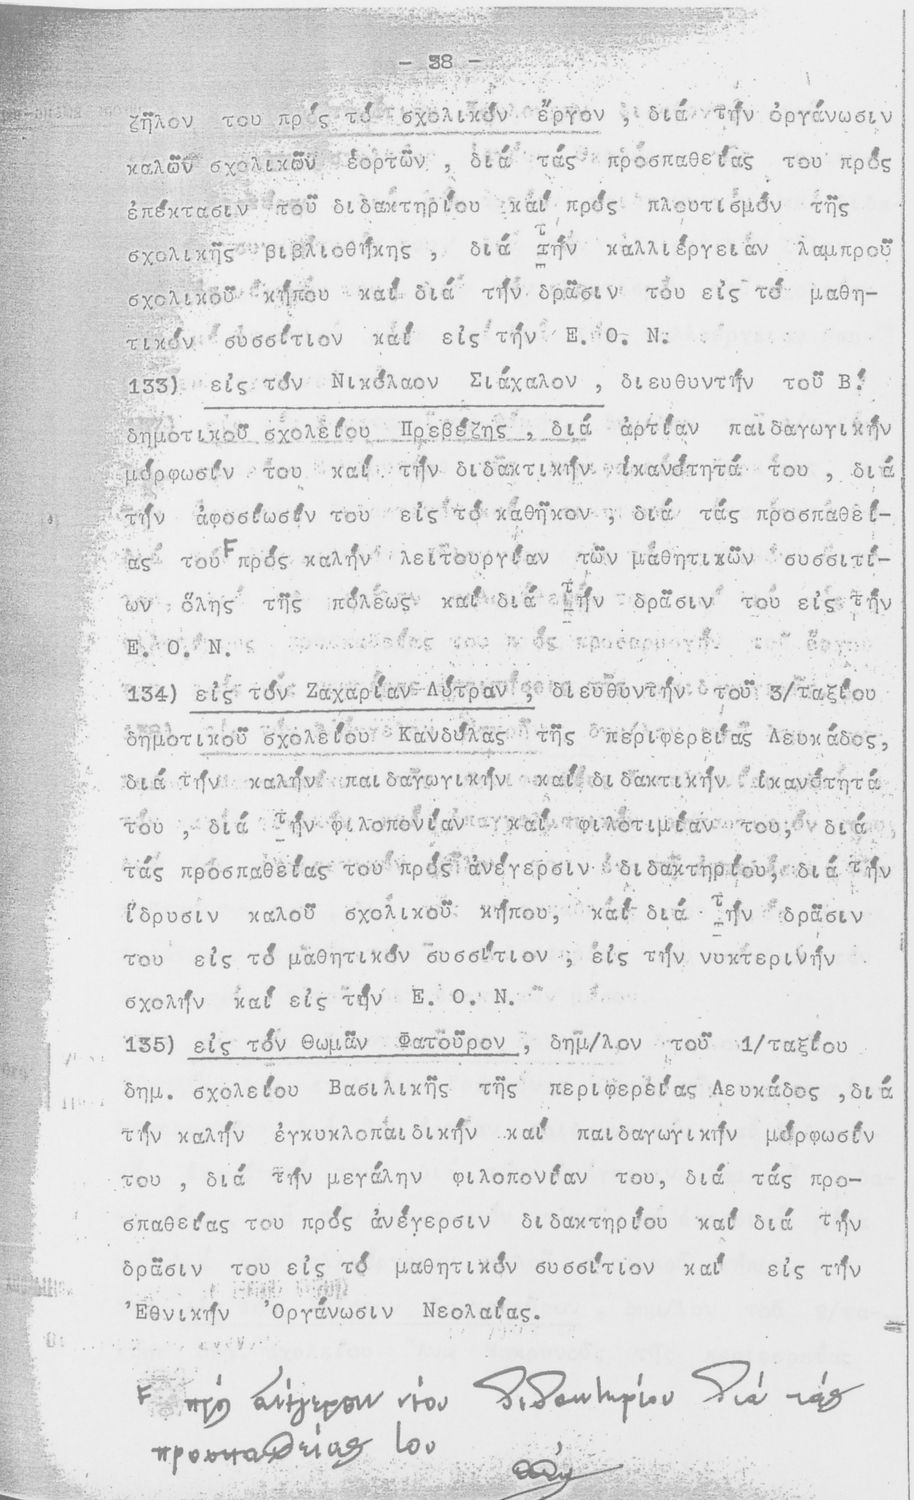 - 38 -
ζῆλον του πρός τό σχολικόν ἔργον , διά τήν ὀργάνωσιν
καλῶν σχολικῶν ἑορτῶν , διά τάς προσπαθείας του πρός
ἐπέκτασιν τοῦ διδακτηρίου καί πρός πλουτισμόν τῆς
σχολικῆς βιβλιοθήκης , διά τήν καλλιέργειαν λαμπροῦ
σχολικοῦ κήπου καί διά τήν δρᾶσιν του εἰς τό μαθη-
τικόν συσσίτιον καί εἰς τήν Ε. Ο. Ν.
133) εἰς τόν Νικόλαον Σιάχαλον , διευθυντήν τοῦ Β!
δημοτικοῦ σχολείου Πρεβέζης , διά ἀρτίαν παιδαγωγικήν
μόρφωσίν του καί τήν διδακτικήν ἱκανότητά του , διά
τήν ἀφοσίωσίν του εἰς τό καθῆκον , διά τάς προσπαθεί-
ας του F πρός καλήν λειτουργίαν τῶν μαθητικῶν συσσιτί-
ων ὅλης τῆς πόλεως καί διά τήν δρᾶσιν του εἰς τήν
Ε. Ο. Ν.
134) εἰς τόν Ζαχαρίαν Λύτραν , διευθυντήν τοῦ 3/ταξίου
δημοτικοῦ σχολείου Κανδύλας τῆς περιφερείας Λευκάδος,
διά τήν καλήν παιδαγωγικήν καί διδακτικήν ἱκανότητά
του , διά τήν φιλοπονίαν καί φιλοτιμίαν του, διά
τάς προσπαθείας του πρός ἀνέγερσιν διδακτηρίου, διά τήν
ἵδρυσιν καλοῦ σχολικοῦ κήπου, καί διά τήν δρᾶσιν
του εἰς τό μαθητικόν συσσίτιον , εἰς τήν νυκτερινήν
σχολήν καί εἰς τήν Ε. Ο. Ν.
135) εἰς τόν Θωμᾶν Φατοῦρον , δημ/λον τοῦ 1/ταξίου
δημ. σχολείου Βασιλικῆς τῆς περιφερείας Λευκάδος ,διά
τήν καλήν ἐγκυκλοπαιδικήν καί παιδαγωγικήν μόρφωσίν
του , διά τήν μεγάλην φιλοπονίαν του, διά τάς προ-
σπαθείας του πρός ἀνέγερσιν διδακτηρίου καί διά τήν
δρᾶσιν του εἰς τό μαθητικόν συσσίτιον καί εἰς τήν
'Εθνικήν 'Οργάνωσιν Νεολαίας.
F πρός ἀνέγερσιν νέου διδακτηρίου διά τάς
προσπαθείας του